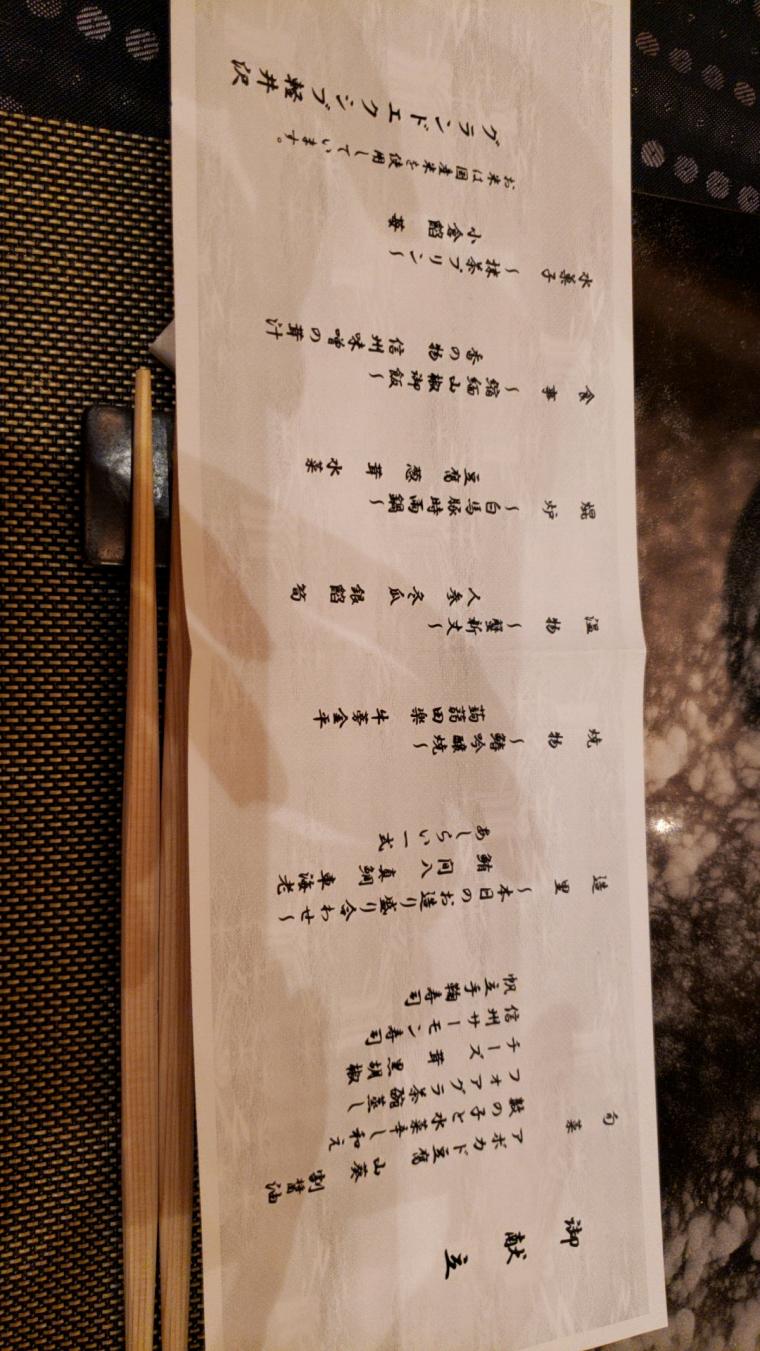 御献立
旬菜
アボカド豆腐 山葵 割醤油
数の子と水菜辛し和え
フォアグラ茶碗蒸し
チーズ 茸 黒胡椒
信州サーモン寿司
帆立手鞠寿司
造里
~本日のお造り盛り合わせ~
鮪 間八 真鯛 車海老
あしらい一式
焼物
~鰆吟醸焼~
蒟蒻田楽 牛蒡金平
温物
~蟹新丈~
人参 冬瓜 銀餡 筍
焜炉
~白馬豚時雨鍋~
豆腐 葱 茸 水菜
食事
~縮緬山椒御飯~
香の物 信州味噌の茸汁
水菓子
~抹茶プリン~
小倉餡 苺
お米は国産米を使用しています。
グランドエクシブ軽井沢